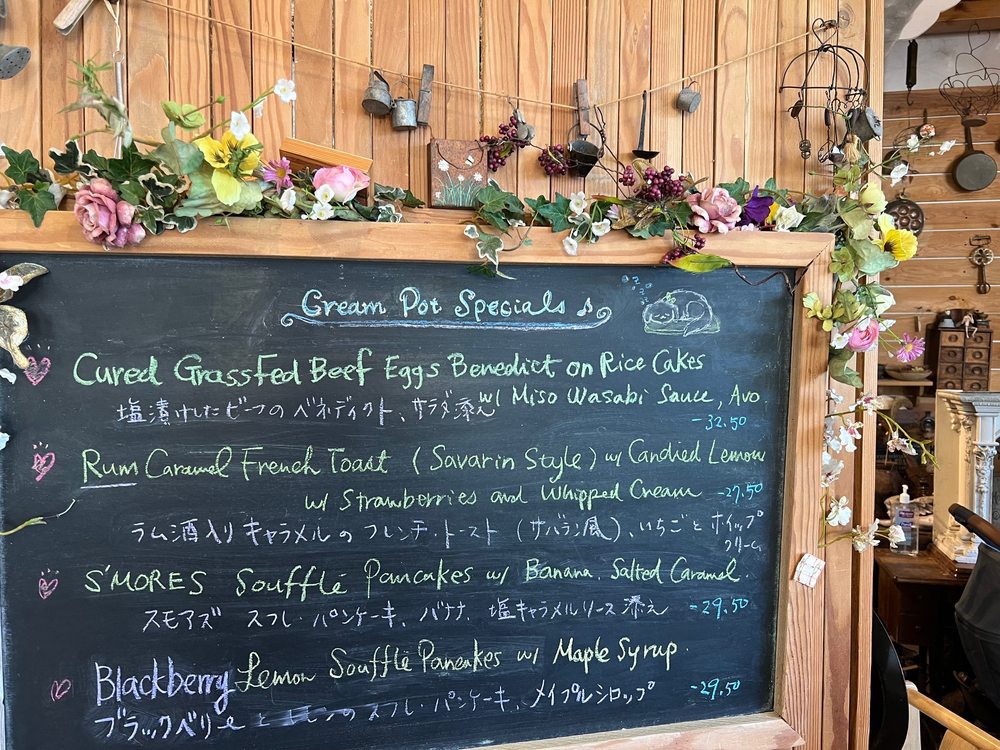 Cream Pot Specials ♪
Cured Grassfed Beef Eggs Benedict on Rice Cakes
w/ Miso Wasabi Sauce, Avo
塩漬けしたビーフのベネディクト、サラダ添え
-32.50
Rum Caramel French Toast (Savarin Style) w/ Candied Lemon
w/ Strawberries and Whipped Cream -27.50
ラム酒入りキャラメルのフレンチ・トースト (サバラン風)、いちごとホイップ
クリーム
S'MORES Soufflé Pancakes w/ Banana, Salted Caramel.
スモアズ スフレ・パンケーキ、バナナ、塩キャラメルソース添え -29.50
Blackberry Lemon Soufflé Pancakes w/ Maple Syrup.
-29.50
ブラックベリーと レモンのスフレ・パンケーキ、メイプルシロップ